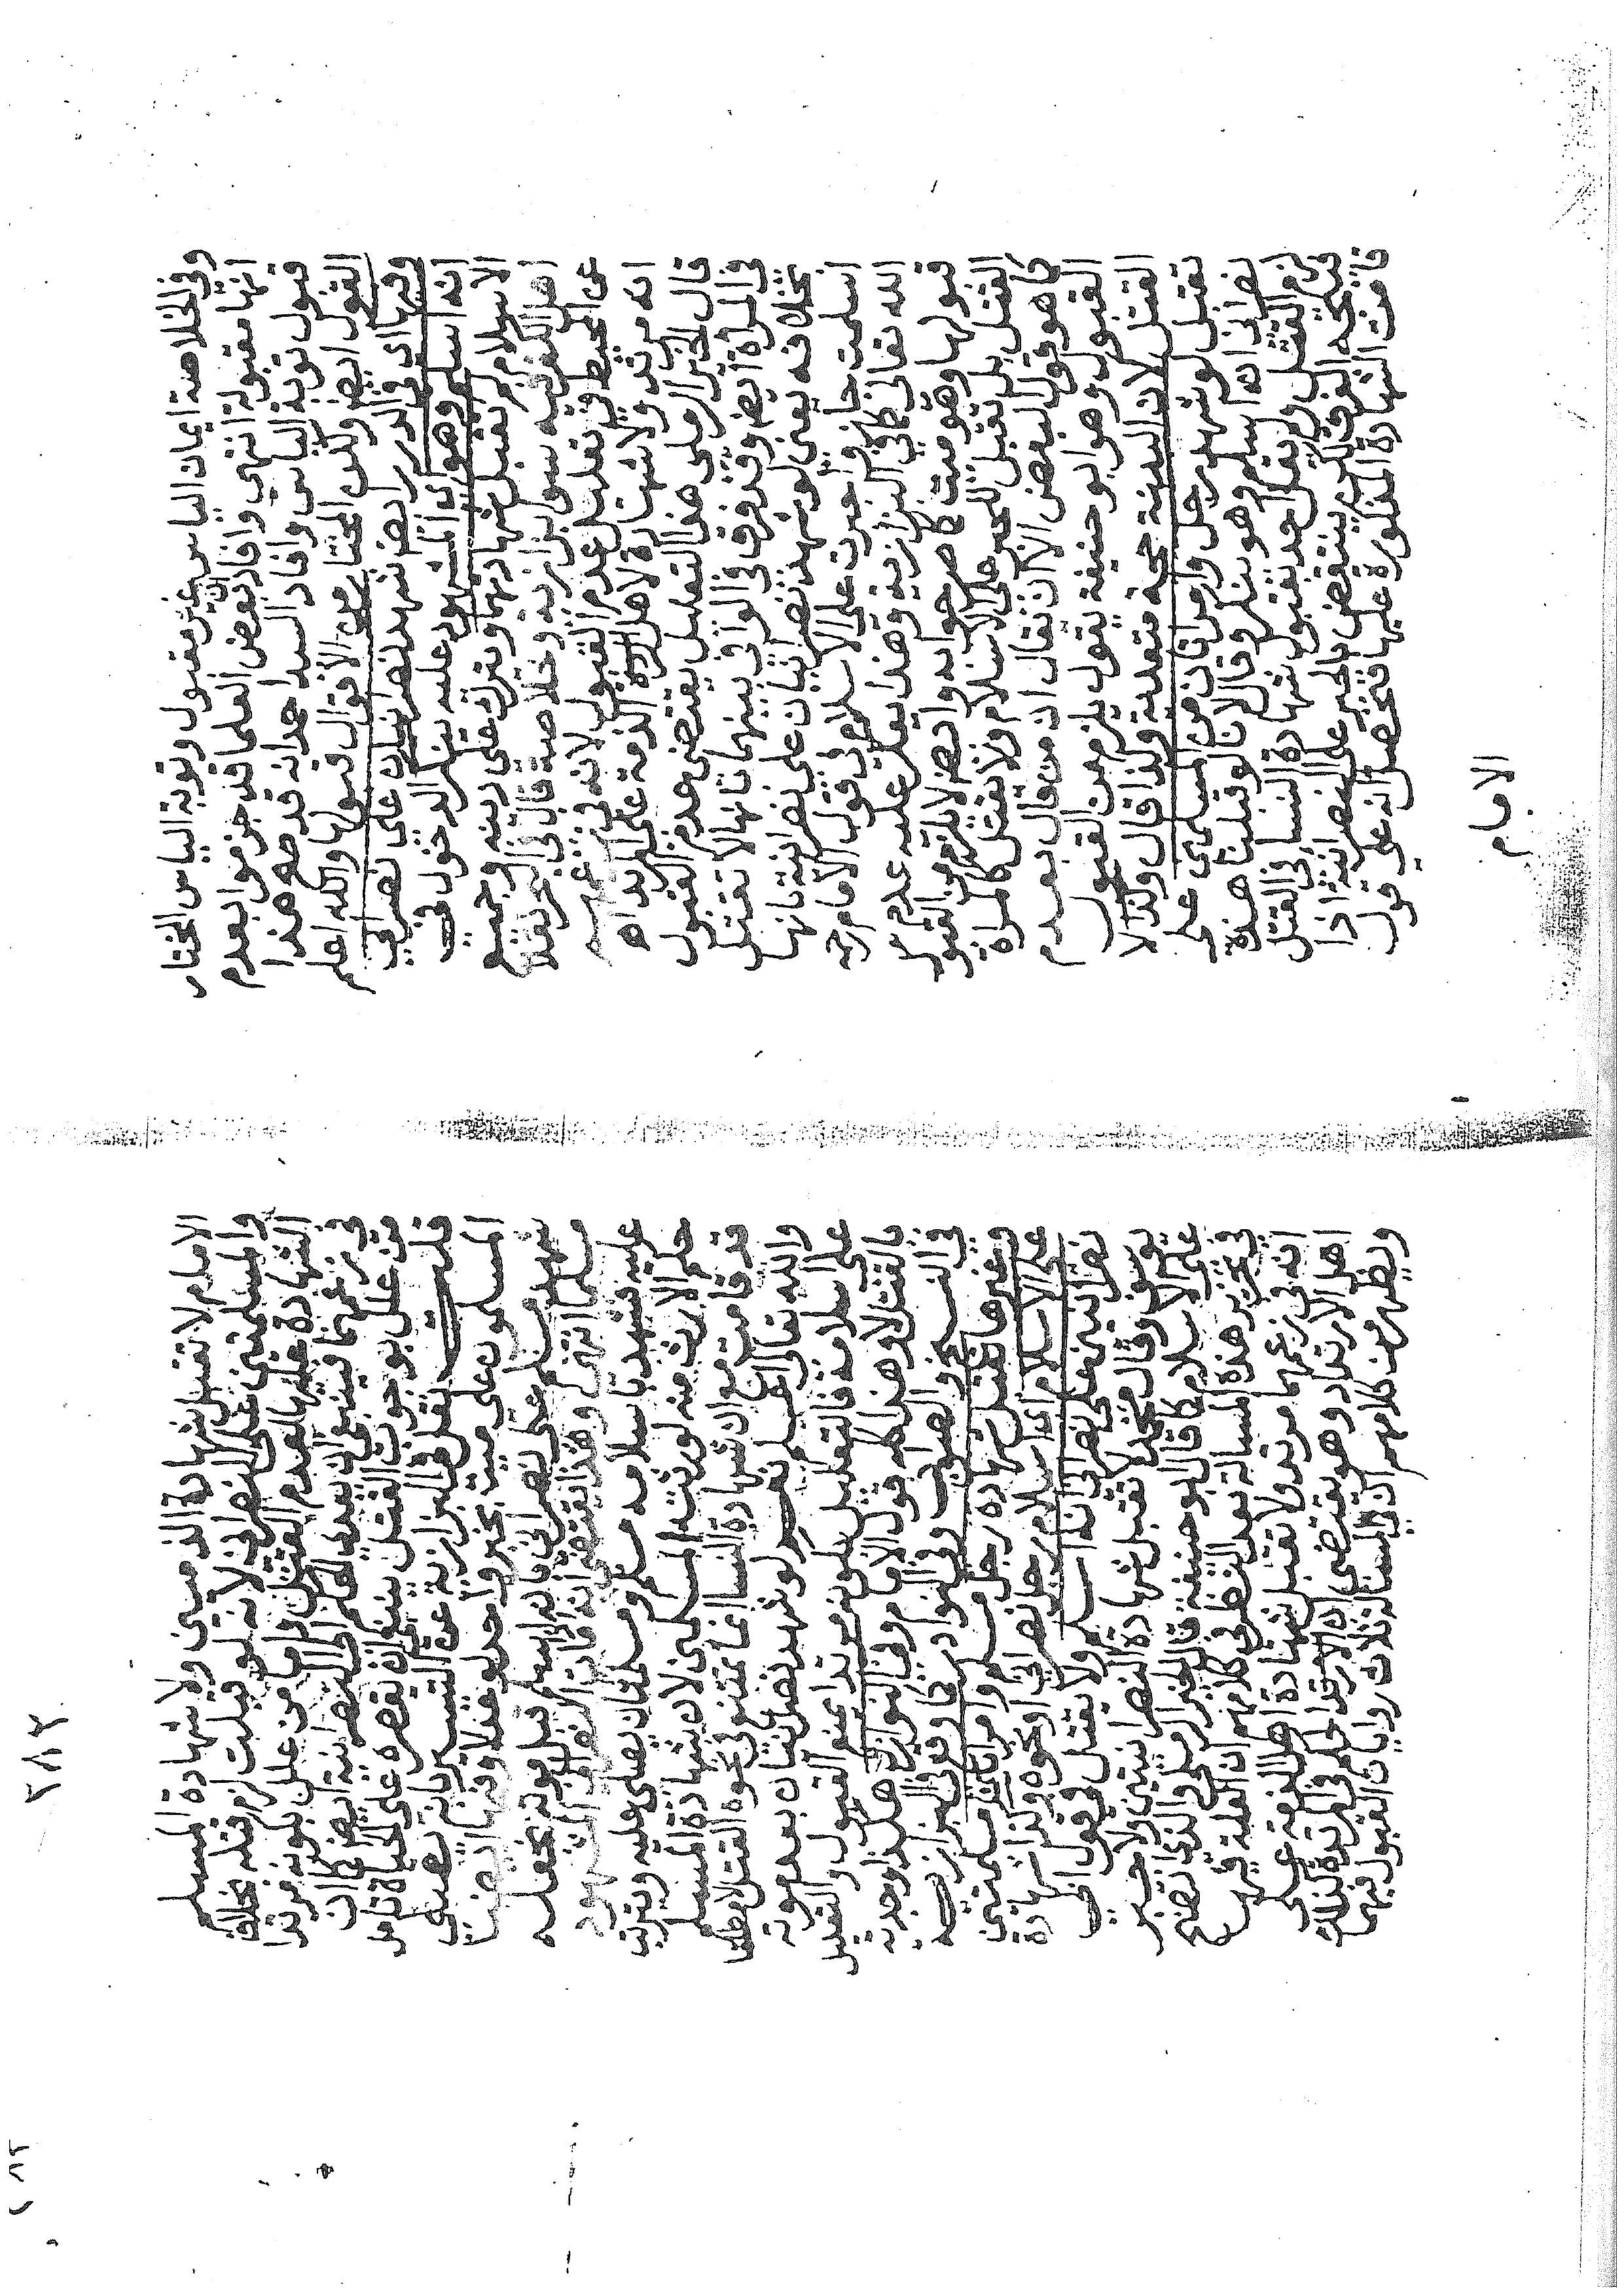 وفي الخلاصة ايمان الياس غير مقبول وتوبة الياس المختار
انها مقبولة انتهي وافاد بعض العلما قد جزموا بعدم
قبول توبة الياس وافاد السيد احمد انه قد صح هذا
القول ايضا ولكن المختار من الاقوال قبولها والله اعلم
وفيها اي في الدرر ايضا شهد نصرانيان علي نصراني
انه اسلم وهو اي المشهود عليه ينكر الدخول في
الاسلام لم تقبل شهادتهما ويترك علي دينه وجميع
اهل الكفر فيه سوا بزازية وخلاصة قال في البحر نقلا
عن المحيط في تعليل عدم القبول لانه في زعمهم
انه مرتد ولا شهادة لاهل الذمة علي المرتد اه
قال الخير الرملي هذا التعليل يقتضي عدم القبول
في المراة ايضا وقد فرق في الوافي بينهما بانها لا تقتل
بخلافه يعني لو شهد نصرانيان علي نصرانية بانها
اسلمت جاز واجبرت علي الاسلام في قول الامام رحمه
الله تعالي كما في البزازية وهذا يعكر عليه عدم
قبولها وهو ميت كما صرحوا به وايضا لا يلزم من القبول
القتل بل تقبل للجبر علي الاسلام ولا يقتل كالمراة
كما هو قول البعض الا ان يقال ان من قال بعدم
القبول وهو ابو حنيفة يقول يلزم من القبول
القتل لان البينة حجة متعدية ولذا قال ولذا لا
تقبل لو شهد رجل وامراتان من المسلمين علي
نصراني انه اسلم وهو ينكر وقال لانا لو قبلنا هذه
لزم القتل ولم يقل احد بقبول شهادة النسا في القتل
فيتجه الفرق لكن ينتقض بالجبر علي النصرانية اذا
قامت الشهادة المذكورة عليها فتحصل انه علي قول
الامام
٢٨٢
الامام لا تقبل شهادة الذميين ولا شهادة المسلم
والمسلمتين علي النصراني لانه لو قبلت لزم قتله بخلاف
الشهادة عليها لعدم القتل واما من علل بكونه مرتدا
في زعمهما فينبغي ان يعدي الحكم الي النصرانية ايضا كما ان
من علل بوجوب القتل ينبغي ان يقصره علي الحياة تامل
قلت نقل في البزازية عن بانه
المسلمون علي ميت بخبر واحد لو عدلا وفيها ايضا
شهد مسلم علي نصراني بانه اسلم قبل موته نجعله
مسلما انتهي وهذا يقتضي انه النصراني المشهود
عليه فشهد باسلامه مسلم ومسلمتان يصلي عليه ويترتب
حكم الارث منه لورثته المسلمين لان شهادة المسلم
قد قامت مع ان شهادة النسا انما تمتنع في نحو القتل لا مطلقا
والله تعالي اعلم نعم لو شهد نصرانيان بعد موته
علي اسلامه فالتعليل بكونه مرتدا يمنع القبول والتعليل
بالقتل لا وهذا كله قول الامام وفي النوازل هكذا وجدته
في النسخ والصواب وفي النوادر كما وقع في البزازية
وغيرها تقبل شهادة رجل مسلم وامراتين مسلمتين
علي الاسلام اي اسلام رجل نصراني او نحوه وكذا شهادة
نصرانيين علي نصراني انه اسلم ولا يقتل وقول ابي
يوسف وقال محمد لا تقبل شهادة النصرانيين ولا تجبر
علي الاسلام كما قال ابو حنيفة قال الخير الرملي والذي اتضح
في تحرير هذه المسالة بعد النظر في كلامهم ان العلة فيها
انه في زعمهما مرتد ولا تقبل شهادة اهل الذمة علي
اهل الارتداد وهو يقتضي ان حكم في المرتدة كذلك
ويظهر من كلامهم ان في المسالة ثلاث روايات القبول فيهما